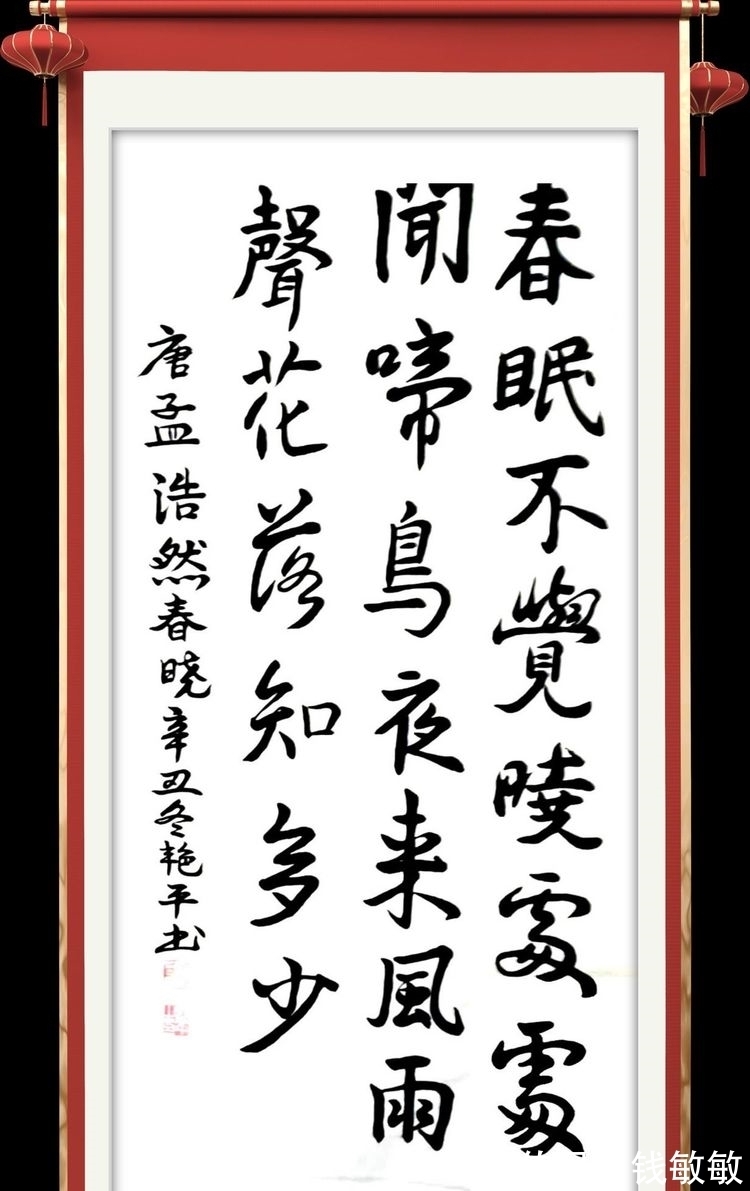 春眠不覺曉處處
聞啼鳥夜来風雨
聲花落知多少
唐孟浩然春晓辛丑冬艳平书
钱敏敏